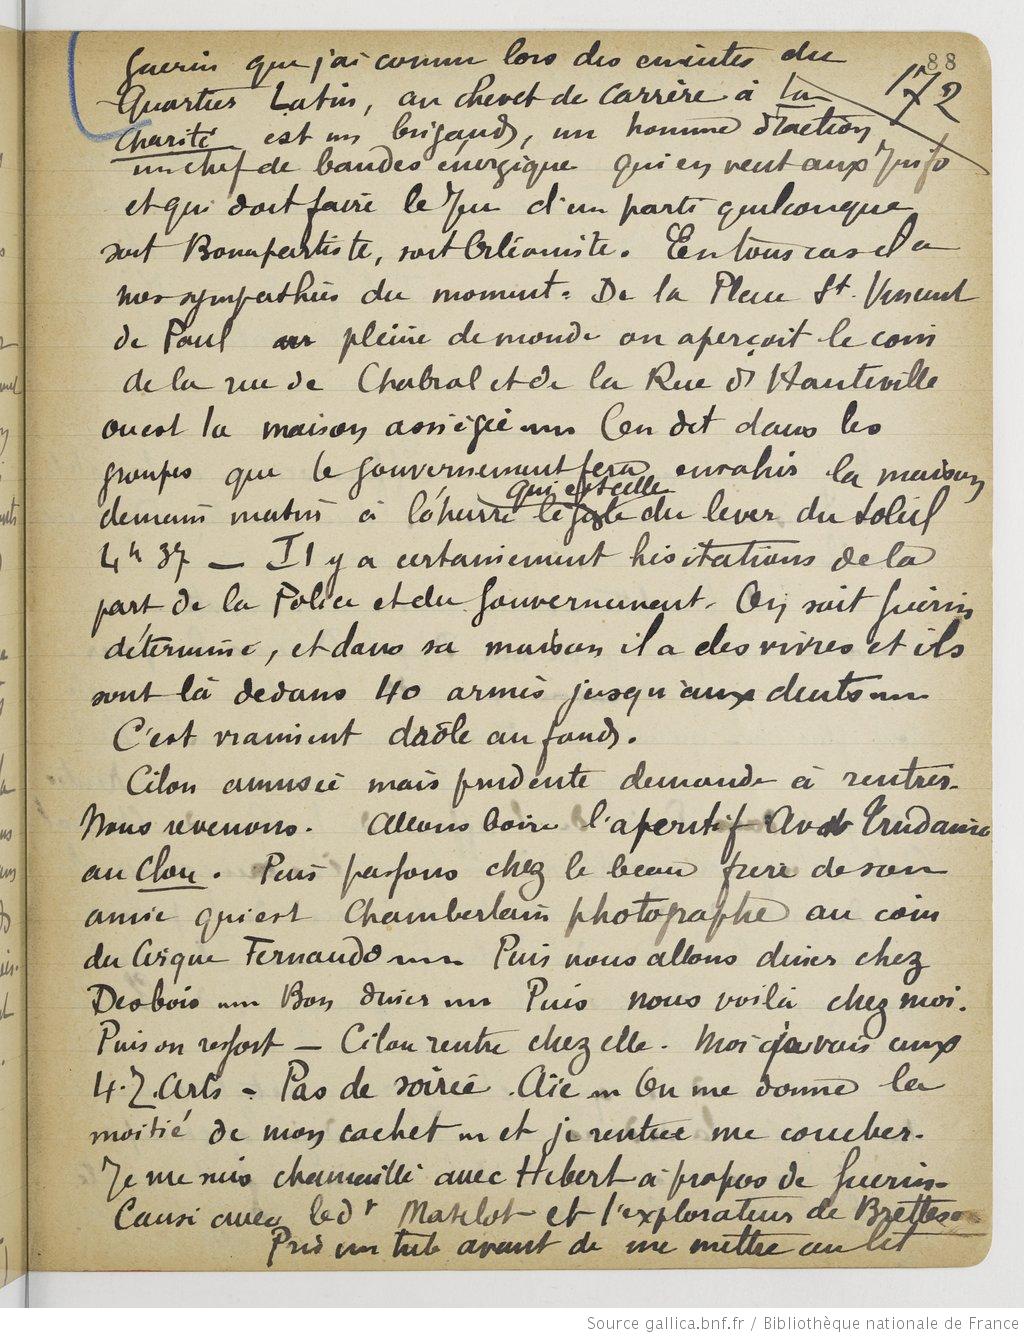 88
172
Guerin que j'ai connu lors des emeutes du
Quartier Latin, au chevet de Carrère à la
Charité est un brigand, un homme d'action
un chef de bandes énergique qui en veut aux Juifs
et qui doit faire le jeu d'un parti quelconque
soit Bonapartiste, soit Orléaniste. En tous cas il a
mes sympathies du moment. De la Place St. Vincent
de Paul pleine de monde on aperçoit le coin
de la rue de Chabrol et de la Rue d'Hauteville
ou est la maison assiégée — On dit dans les
groupes que le gouvernement fera envahir la maison
qui est celle
demain matin à l'heure légale du lever du soleil
4h 37 — Il y a certainement hésitations de la
part de la Police et du Gouvernement. On sait Guérin
déterminé, et dans sa maison il a des vivres et ils
sont là dedans 40 armés jusqu'aux dents —
C'est vraiment drôle au fond.
Cilou amusée mais prudente demande à rentrer.
Nous revenons. Allons boire l'aperitif Av Trudaine
au Clou. Puis passons chez le beau frere de son
amie qui est Chamberlain photographe au coin
du Cirque Fernando — Puis nous allons diner chez
Desbois — Bon diner — Puis nous voilà chez moi.
Puis on ressort — Cilou rentre chez elle. Moi je vais aux
4.Z.Arts — Pas de soirée. Aïe — On me donne la
moitié de mon cachet — et je rentre me coucher.
Je me suis chamaillé avec Hébert à propos de Guerin —
Causé avec le dr Matelot et l'explorateur de Brettes —
Pris un tub avant de me mettre au lit
Source gallica.bnf.fr / Bibliothèque nationale de France